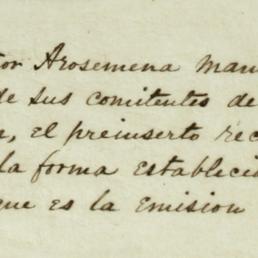 tor Arosemena man
de sus comitentes de
, el preinserto rec
la forma estableci
que es la emision